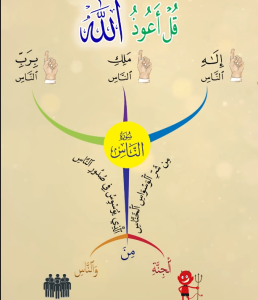 قُلْ أَعُوذُ اللَّهُ
بِرَبِّ
النَّاسِ
مَلِكِ
النَّاسِ
إِلَهِ
النَّاسِ
سُورَةُ
النَّاسِ
مِن شَرِّ الْوَسْوَاسِ الْخَنَّاسِ
الَّذِي يُوَسْوِسُ فِي صُدُورِ النَّاسِ
مِنَ
الْجِنَّةِ
وَالنَّاسِ